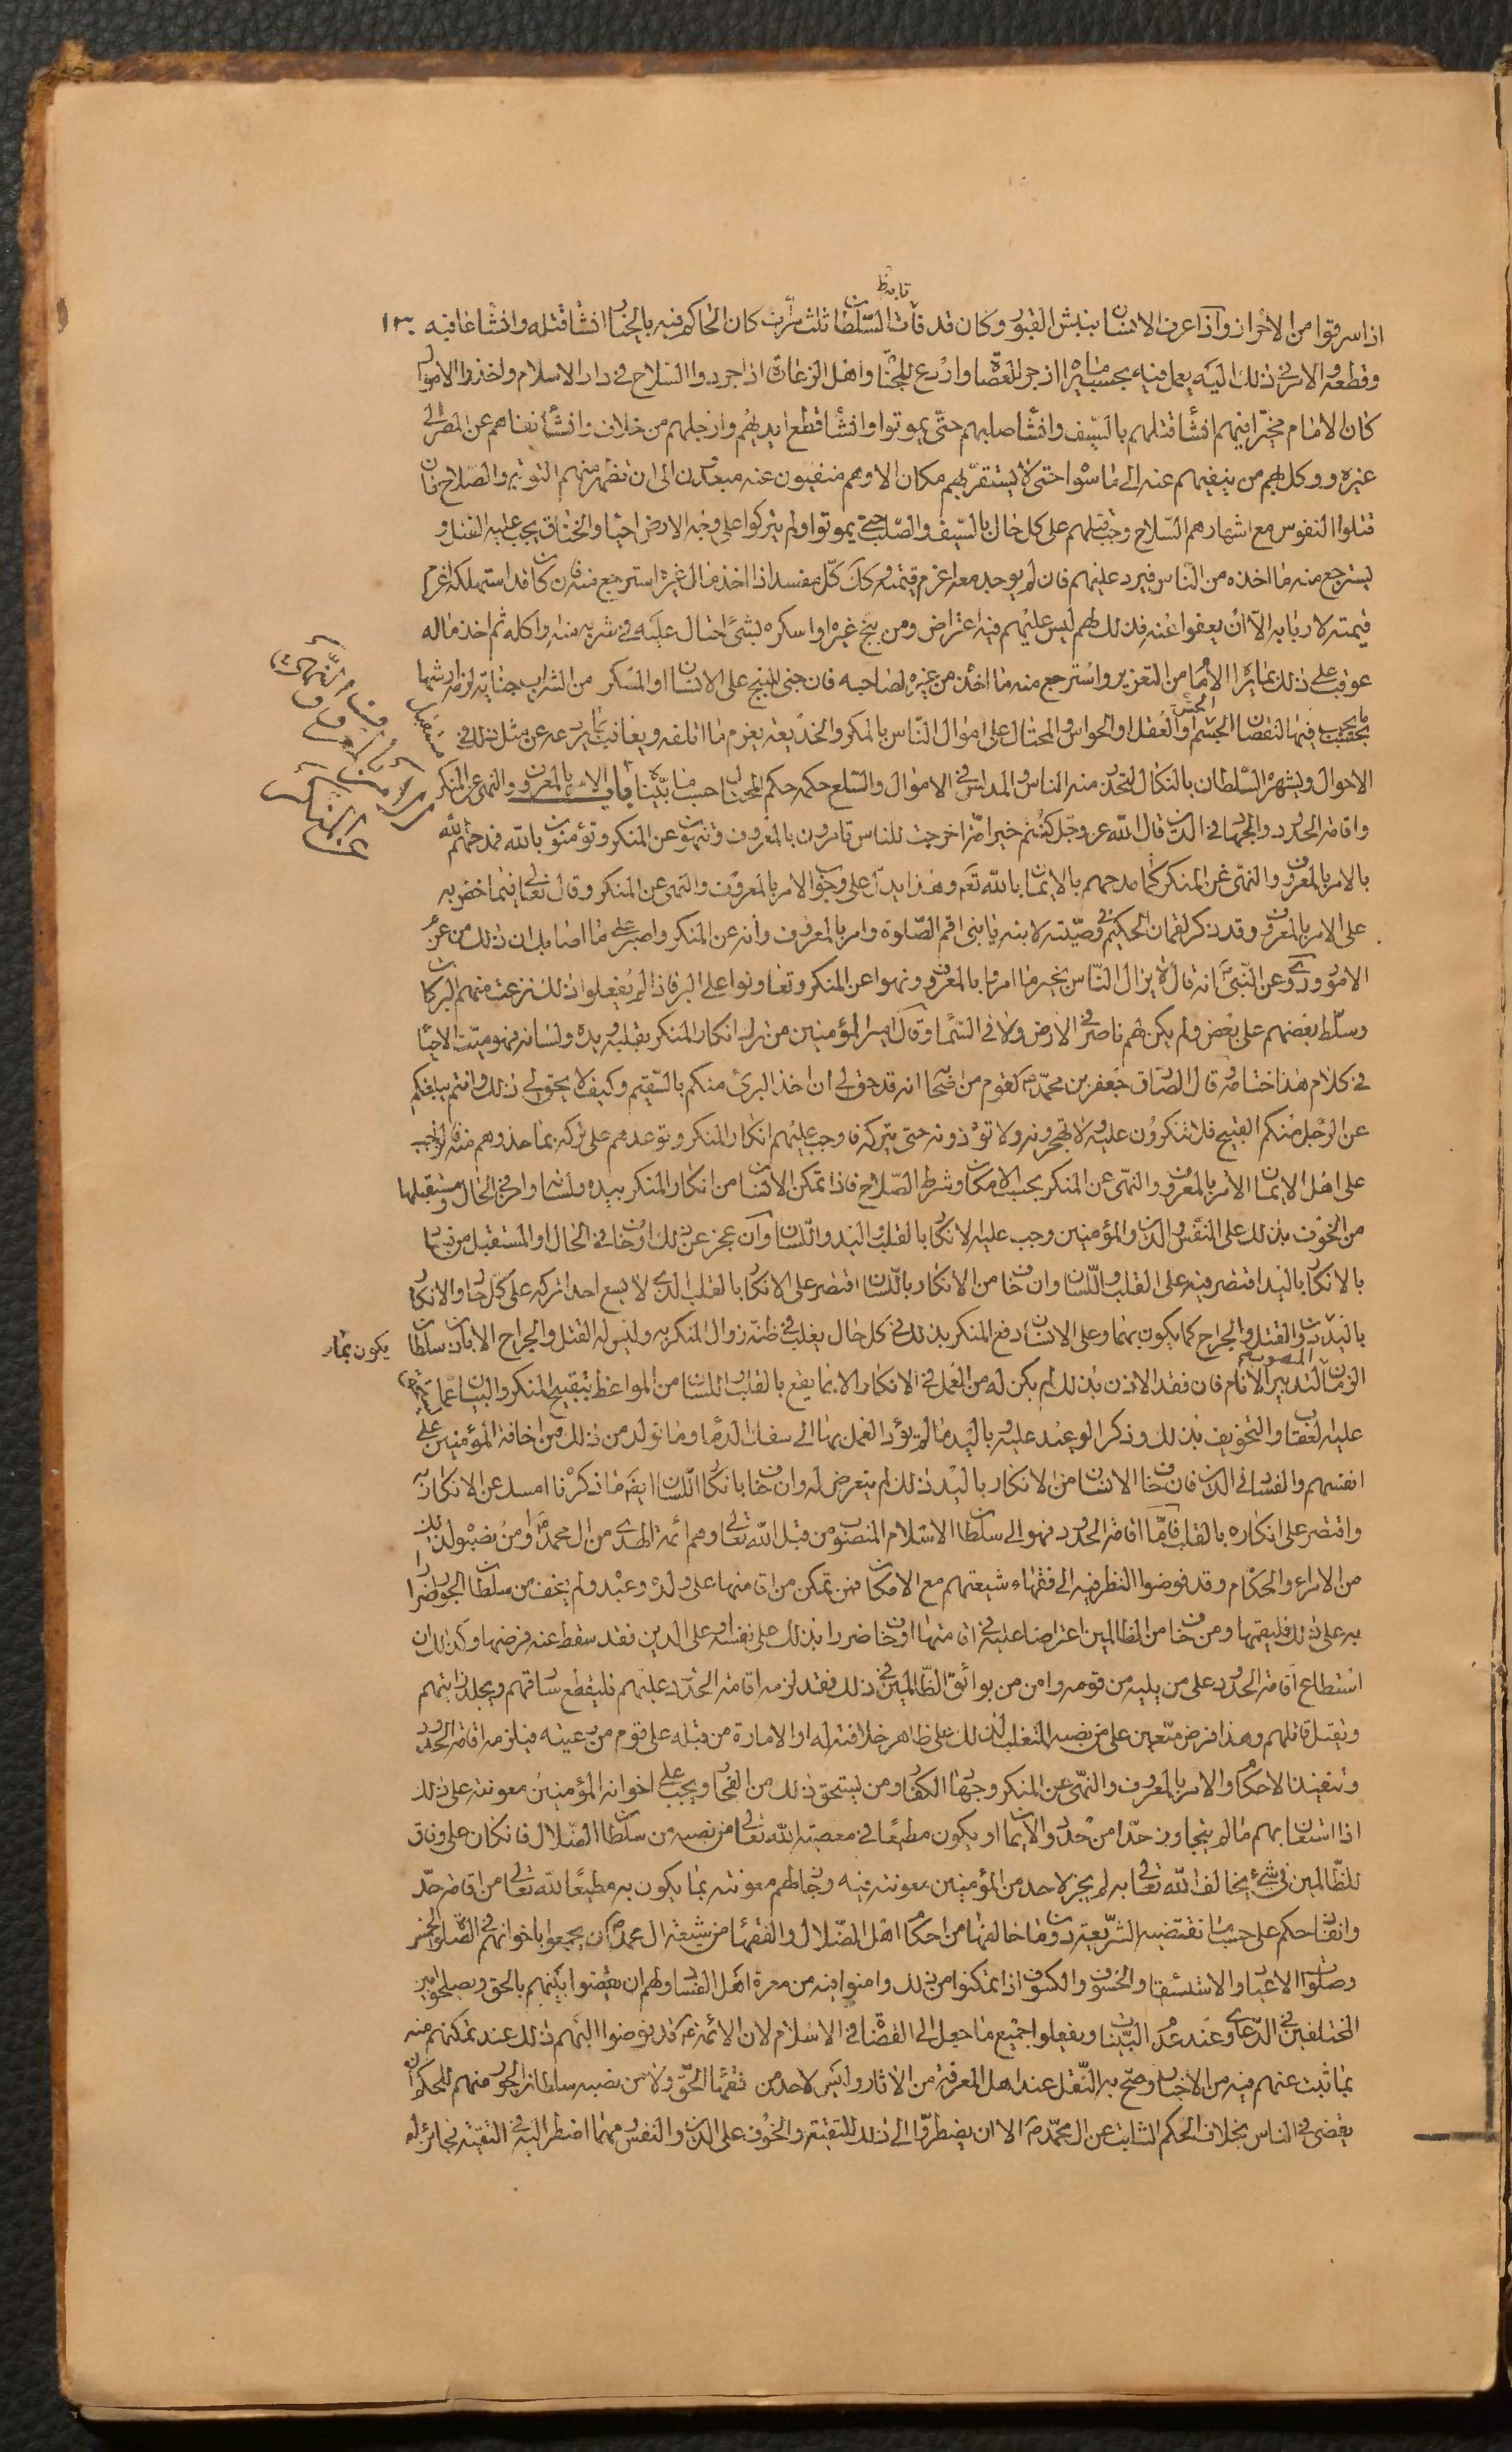 اذا سرقوا من الاحراز واذا عرف الانسان بنبش القبور وكان قد فات السلطان ثلث مرات كان الحاكم فيه بالخيار ان شا قتله وان شا عاقبه
وقطعه والامر في ذلك اليه يعمل فيه بحسب ما يراه ازجر للعصاة واردع للجناة واهل الزعارة اذا جردوا السلاح في دار الاسلام واخذوا الاموال
كان الامام مخيرا فيهم ان شا قتلهم بالسيف وان شا صلبهم حتى يموتوا وان شا قطع ايديهم وارجلهم من خلاف وان شا نفاهم عن المصر الى
غيره ووكل بهم من ينفيهم عنه الى ما سواه حتى لا يستقر بهم مكان الا وهم منفيون عنه مبعدون الى ان تظهر منهم التوبة والصلاح فان
قتلوا النفوس مع اشهارهم السلاح وجب قتلهم على كل حال بالسيف والصلب حتى يموتوا ولم يتركوا على وجه الارض احيا والخناق يجب عليه القتل و
يسترجع منه ما اخذه من الناس فيرد عليهم فان لم يوجد معه اغرم قيمته وكك كل مفسد اذا اخذ مال غيره استرجع منه فان كان قد استهلكه اغرم
قيمته لاربابه الا ان يعفوا عنه فذلك لهم ليس عليهم فيه اعتراض ومن بنج غيره او اسكره بشئ احتال عليه في شربه منه واكله ثم اخذ ماله
عوقب على ذلك بما يراه الامام من التعزير واسترجع منه ما اخذ من غيره لصاحبه فان جنى البنج على الانسان او المسكر من الشراب جناية لزمه ارشها
بحسب فيها لنقصان الجسم والعقل او الحواس والمحتال على اموال الناس بالمكر والخديعة يغرم ما اتلفه ويعاقب بما يردعه عن مثل ذلك في
الاحوال ويشهره السلطان بالنكال ليحذر منه الناس والمدلس في الاموال والسلع حكمه حكم المحتال حسب ما بيناه باب الامر بالمعروف والنهي عن المنكر
واقامة الحدود والجهاد في الدين قال الله عز وجل كنتم خير امة اخرجت للناس تامرون بالمعروف وتنهون عن المنكر وتؤمنون بالله فمدحهم الله
بالامر بالمعروف والنهي عن المنكر كما مدحهم بالايمان بالله تعه وهذا يدل على وجوب الامر بالمعروف والنهي عن المنكر وقال تعالى فيما اخص به
على الامر بالمعروف وقد ذكر لقمان الحكيم في وصيته لابنه يا بنى اقم الصلوة وامر بالمعروف وانه عن المنكر واصبر على ما اصابك ان ذلك من عزم
الامور وروى عن النبى ص انه قال لا يزال الناس بخير ما امروا بالمعروف ونهوا عن المنكر وتعاونوا على البر فاذا لم يفعلوا ذلك نزعت منهم البركات
وسلط بعضهم على بعض ولم يكن لهم ناصر في الارض ولا في السما وقال امير المؤمنين من ترك انكار المنكر بقلبه ويده ولسانه فهو ميت الاحيا
في كلام هذا ختامه وقال الصادق جعفر بن محمد لقوم من اصحابه انه قد حق لى ان اخذ البرئ منكم بالسقيم وكيف لا يحق لى ذلك وانتم يبلغكم
عن الرجل منكم القبيح فلا تنكرون عليه ولا تهجرونه ولا تؤذونه حتى يتركه فاوجب عليهم انكار المنكر وتوعدهم على تركه بما حذرهم منه فالواجب
على اهل الايمان الامر بالمعروف والنهي عن المنكر بحسب الامكان وشرط الصلاح فاذا تمكن الانسان من انكار المنكر بيده ولسانه وامن في الحال ومستقبلها
من الخوف بذلك على النفس والدين والمؤمنين وجب عليه الانكار بالقلب واليد واللسان وان عجز عن ذلك او خاف في الحال او المستقبل من فساد
بالانكار باليد اقتصر فيه على القلب واللسان وان خاف من الانكار باللسان اقتصر على الانكار بالقلب الذى لا يسع احدا تركه على كل حال والانكار
باليد دون القتل والجراح كما يكون بهما وعلى الانسان دفع المنكر بذلك في كل حال يغلب في ظنه زوال المنكر به وليس له القتل والجراح الا باذن سلطان
الزمان لتدبير الانام فان فقد الاذن بذلك لم يكن له من العمل في الانكار الا بما يقع بالقلب واللسان من المواعظ بتقبيح المنكر والبيان عما يستحق
عليه العقاب والتخويف بذلك وذكر الوعيد عليه وباليد ما لم يؤد العمل بها الى سفك الدما وما تولد من ذلك من اخافة المؤمنين على
انفسهم والفساد في الدين فان خاف الانسان من الانكار باليد ذلك لم يتعرض له وان خاف بانكار اللسان ايضا ما ذكرناه امسك عن الانكار به
واقتصر على انكاره بالقلب فاما اقامة الحدود فهو الى سلطان الاسلام المنصوب من قبل الله تعالى وهم ائمة الهدى من ال محمد ومن نصبوه لذلك
من الامراء والحكام وقد فوضوا النظر فيه الى فقهاء شيعتهم مع الامكان فمن تمكن من اقامتها على ولده وعبده ولم يخف من سلطان الجور اضرارا
به على ذلك فليقمها ومن خاف من الظالمين اعتراضا عليه في اقامتها او خاف ضررا بذلك على نفسه او على الدين فقد سقط عنه فرضها وكذلك ان
استطاع اقامة الحدود على من يليه من قومه وامن من بوائق الظالمين في ذلك فقد لزمه اقامة الحدود عليهم فليقطع سارقهم ويجلد زانيهم
ويقتل قاتلهم وهذا فرض متعين على من نصبه المتغلب لذلك على ظاهر خلافته له او الامارة من قبله على قوم من رعيته فيلزمه اقامة الحدود
وتنفيذ الاحكام والامر بالمعروف والنهي عن المنكر وجهاد الكفار ومن يستحق ذلك من الفجار ويجب على اخوانه المؤمنين معونته على ذلك
اذا استعان بهم ما لم يتجاوز حدا من حدود الايمان او يكون مطيعا في معصية الله تعالى من نصبه من سلطان الضلال فان كان على وفاق
للظالمين في شئ يخالف الله تعالى به لم يجز لاحد من المؤمنين معونته فيه وجاز لهم معونته بما يكون به مطيعا لله تعالى من اقامة حد
وانفاذ حكم على حسب ما تقتضيه الشريعة دون ما خالفها من احكام اهل الضلال والفقها من شيعة ال محمد ان يجمعوا باخوانهم في الصلوات الخمس
وصلوات الاعياد والاستسقاء والخسوف والكسوف اذا تمكنوا من ذلك وامنوا فيه من معرة اهل الفساد ولهم ان يقضوا بينهم بالحق ويصلحوا بين
المختلفين في الدعاوى عند عدم البينات ويفعلوا جميع ما جعل الى القضاة في الاسلام لان الائمة ع قد فوضوا اليهم ذلك عند تمكنهم منه
بما ثبت عنهم فيه من الاخبار وصح به النقل عند اهل المعرفة من الاثار وليس لاحد من فقها الحق ولا من نصبه سلطان الجور منهم للحكم ان
يقضى في الناس بخلاف الحكم الثابت عن ال محمد ص الا ان يضطر الى ذلك للتقية والخوف على الدين والنفس ومهما اضطر اليه في التقية فجائز له